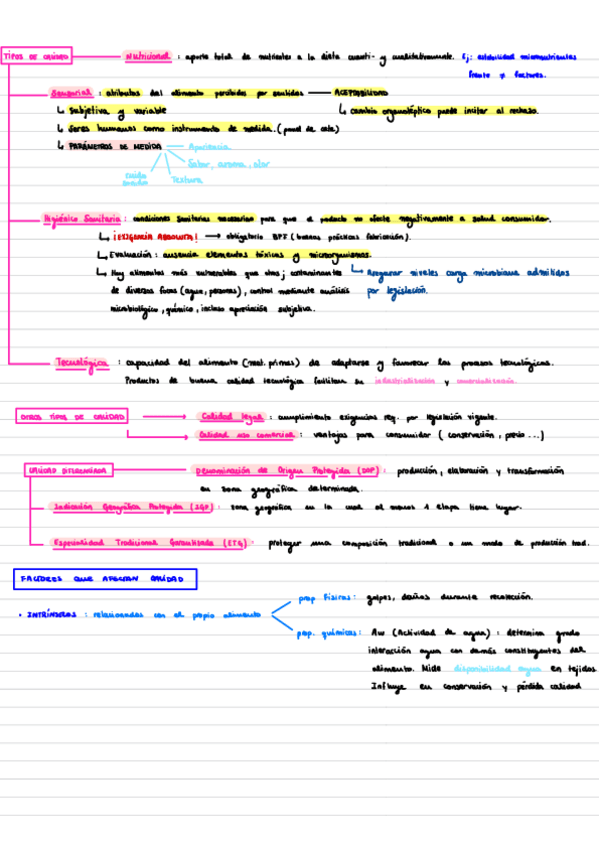 TIPOS DE CALIDAD
Nutricional : aporte total de nutrientes a la dieta cuanti- y cualitativamente. Ej: estabilidad micronutrientes
frente ≠ factores.
Sensorial : atributos del alimento percibidos por sentidos — ACEPTABILIDAD
↳ Subjetiva y variable
↳ cambio organoléptico puede incitar al rechazo.
↳ Seres humanos como instrumento de medida. (panel de cata)
↳ PARÁMETROS DE MEDIDA
Apariencia
Sabor, aroma, olor
Textura
Higiénico Sanitaria : condiciones sanitarias necesarias para que el producto no afecte negativamente a salud consumidor.
↳ ¡EXIGENCIA ABSOLUTA! → obligatorio BPF (buenas prácticas fabricación).
↳ Evaluación : ausencia elementos tóxicos y microorganismos.
↳ Asegurar niveles carga microbiana admitidos
por legislación.
↳ Hay alimentos más vulnerables que otros; contaminantes
de diversos focos (agua, personas), control mediante análisis
microbiológico, químico, incluso apreciación subjetiva.
Tecnológica : capacidad del alimento (mat. primas) de adaptarse y favorecer los procesos tecnológicos.
Productos de buena calidad tecnológica facilitan su industrialización y comercialización.
OTROS TIPOS DE CALIDAD
Calidad legal : cumplimiento exigencias req. por legislación vigente.
Calidad uso comercial : ventajas para consumidor ( conservación, precio ...)
CALIDAD DIFERENCIADA
Denominación de Origen Protegida (DOP) : producción, elaboración y transformación
en zona geográfica determinada.
Indicación Geográfica Protegida (IGP) : zona geográfica en la cual al menos 1 etapa tiene lugar.
Especialidad Tradicional Garantizada (ETG) : proteger una composición tradicional o un modo de producción trad.
FACTORES QUE AFECTAN CALIDAD
• INTRÍNSECOS : relacionados con el propio alimento
prop físicas: golpes, daños durante recolección.
prop. químicas: Aw (Actividad de agua) : determina grado
interacción agua con demás constituyentes del
alimento. Mide disponibilidad agua en tejidos
Influye en conservación y pérdida calidad